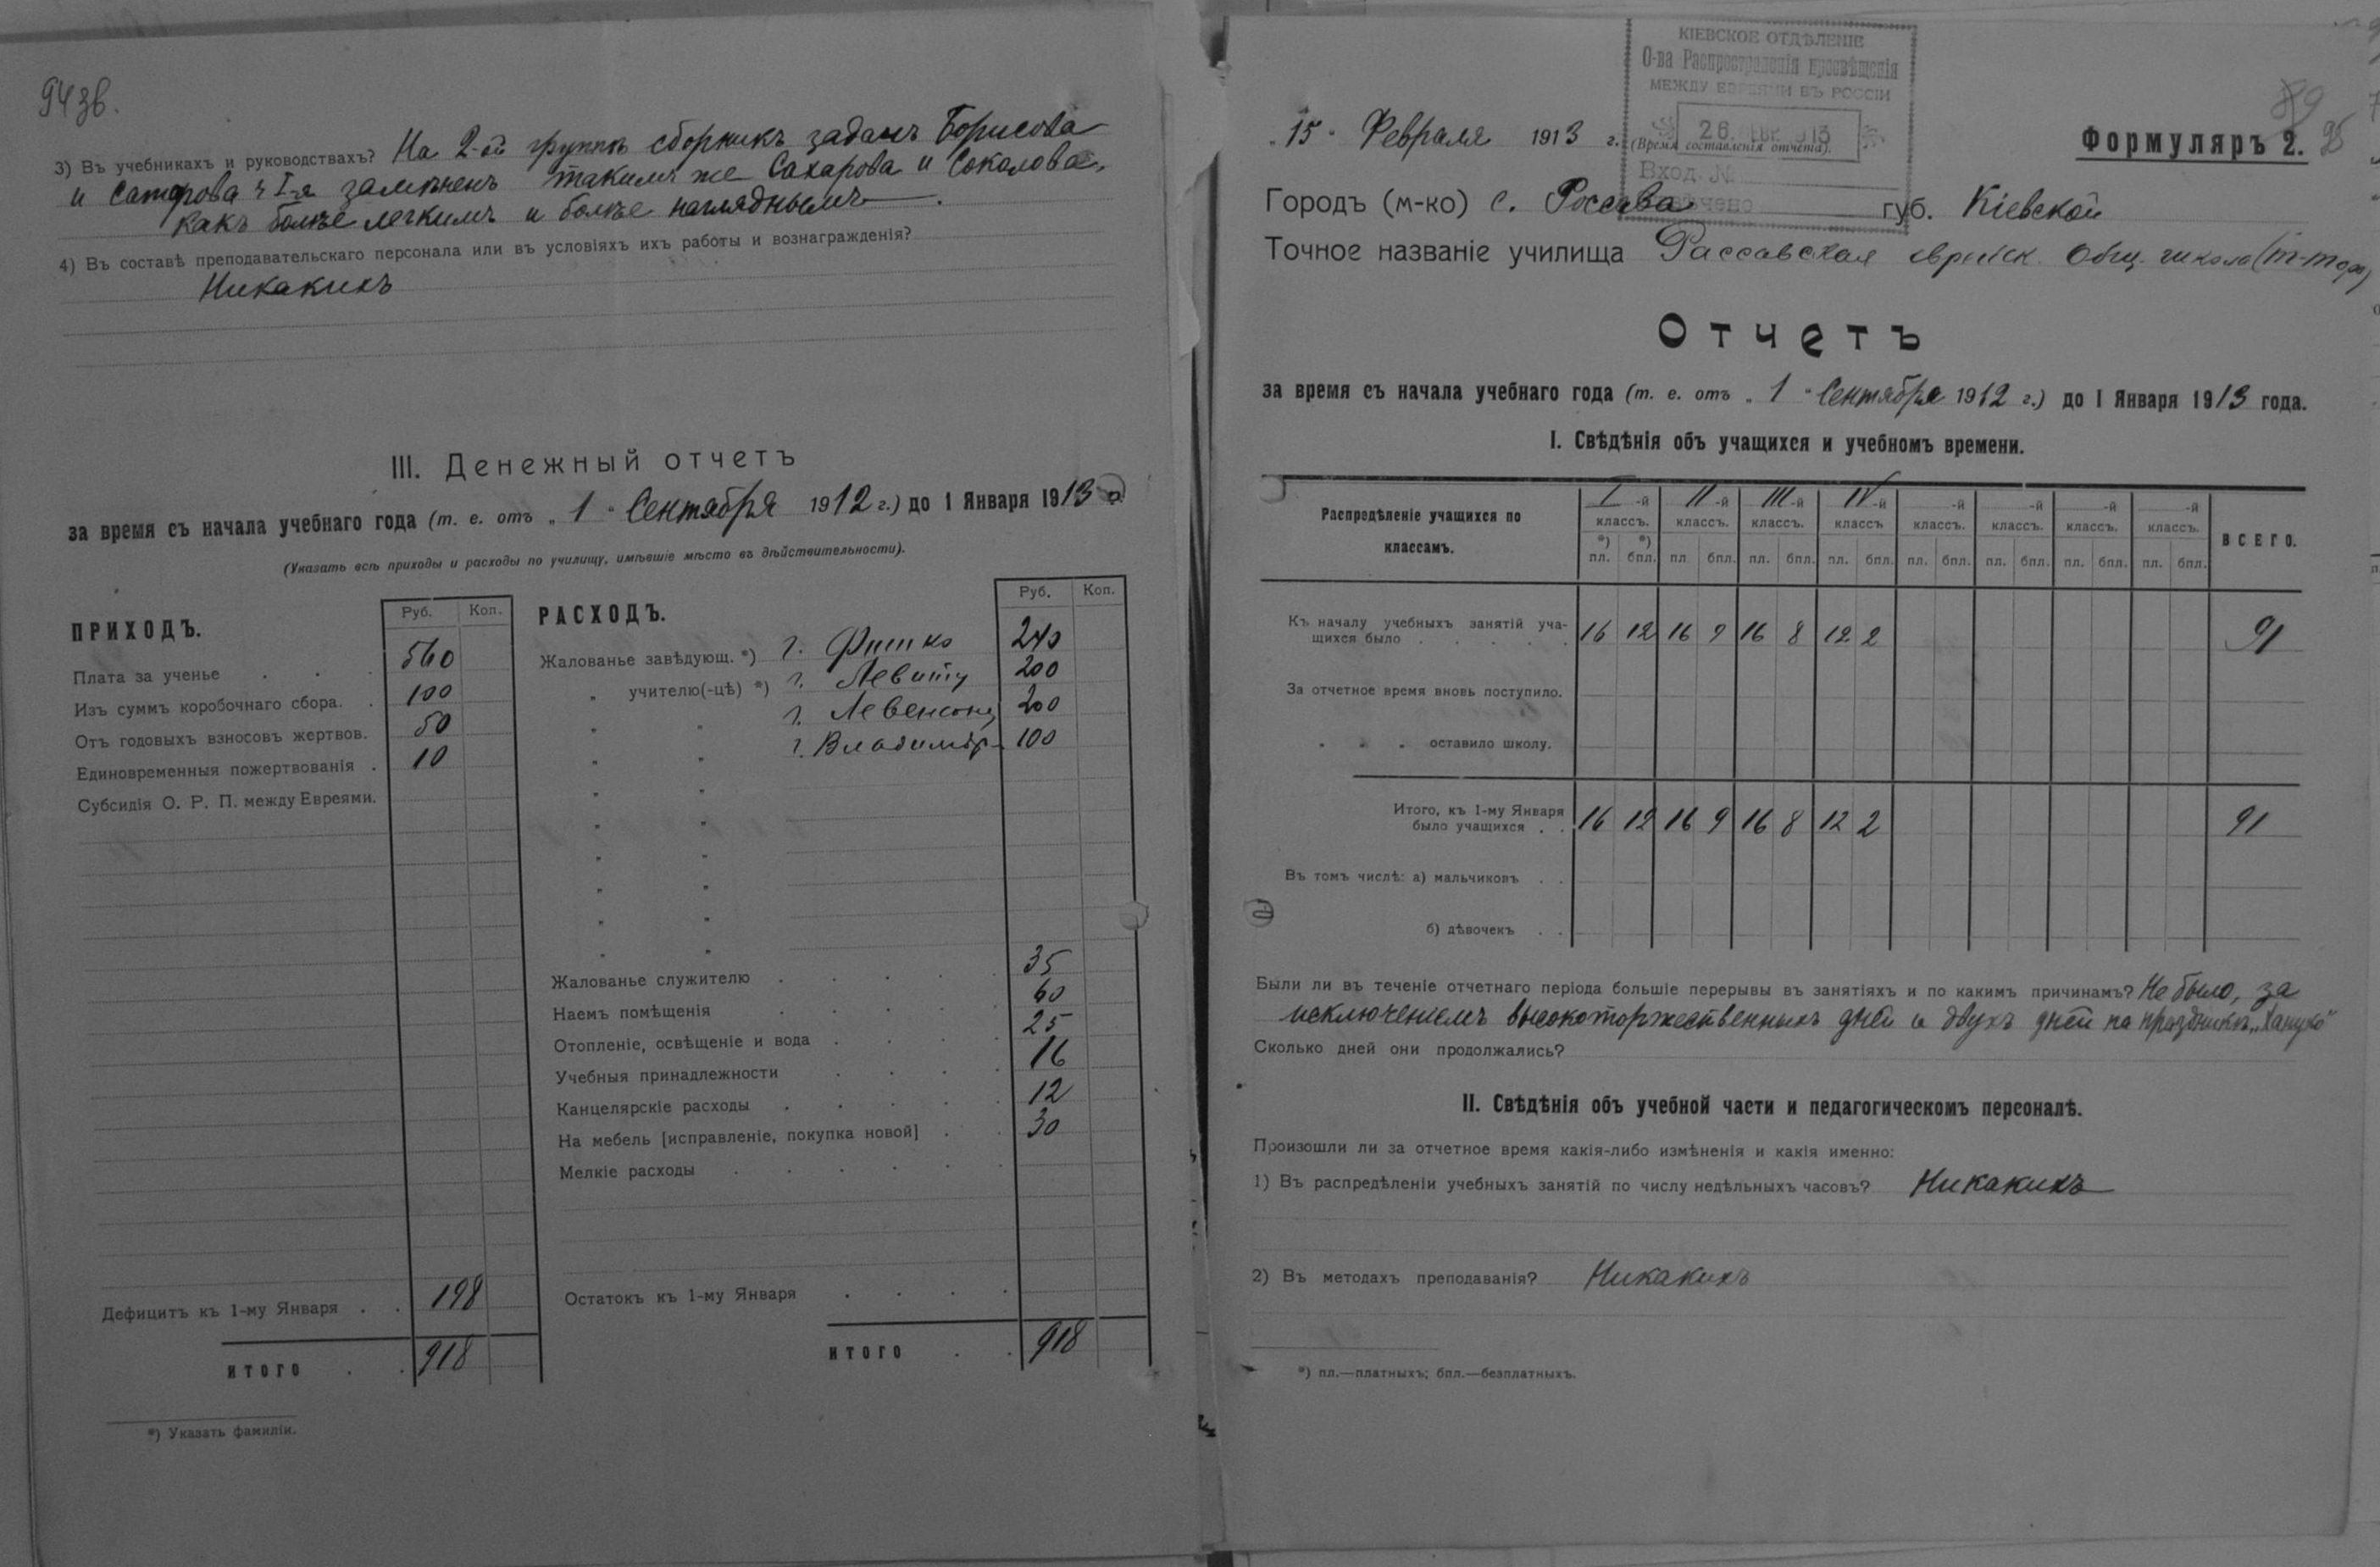 94 зв.
3) Въ учебникахъ и руководствахъ? На 2-ой группѣ сборникъ задачъ Борисова
и Сатарова ч I-я замѣненъ такимъ же Сахарова и Соколова,
какъ болѣе легкимъ и болѣе нагляднымъ.
4) Въ составѣ преподавательскаго персонала или въ условіяхъ ихъ работы и вознагражденія?
Никакихъ
III. Денежный отчетъ
за время съ начала учебнаго года (т. е. отъ „ 1 " Сентября 1912 г.) до 1 Января 1913 г.
(Указать всѣ приходы и расходы по училищу, имѣвшіе мѣсто въ дѣйствительности).
ПРИХОДЪ. Руб. Коп.
Плата за ученье 560
Изъ суммъ коробочнаго сбора. 100
Отъ годовыхъ взносовъ жертвов. 50
Единовременныя пожертвованія 10
Субсидія О. Р. П. между Евреями.
Дефицитъ къ 1-му Января 198
ИТОГО 918
РАСХОДЪ. Руб. Коп.
Жалованье завѣдующ. *) г. Фишко 240
„ учителю(-цѣ) *) г. Левиту 200
„ „ г. Левенсону 200
„ „ г. Владимір. 100
Жалованье служителю 35
Наемъ помѣщенія 60
Отопленіе, освѣщеніе и вода 25
Учебныя принадлежности 16
Канцелярскіе расходы 12
На мебель [исправленіе, покупка новой] 30
Мелкіе расходы
Остатокъ къ 1-му Января
ИТОГО 918
*) Указать фамиліи.
КІЕВСКОЕ ОТДѢЛЕНІЕ
О-ва Распространенія просвѣщенія
МЕЖДУ ЕВРЕЯМИ ВЪ РОССІИ
26. ФЕВ. 1913
Вход. №
„ 15 " Февраля 1913 г. (Время составленія отчета).
Формуляръ 2. 95
89
Городъ (м-ко) с. Россава губ. Кіевской
Точное названіе училища Рассавская еврейск. Общ. школа (т-тора)
Отчетъ
за время съ начала учебнаго года (т. е. отъ „ 1 " Сентября 1912 г.) до 1 Января 1913 года.
I. Свѣдѣнія объ учащихся и учебномъ времени.
Распредѣленіе учащихся по классамъ. I-й классъ. II-й классъ. III-й классъ. IV-й классъ -й классъ. -й классъ. -й классъ. -й классъ. ВСЕГО.
*) пл. *) бпл. пл бпл. пл. бпл. пл. бпл. пл. бпл. пл. бпл. пл. бпл. пл. бпл.
Къ началу учебныхъ занятій уча-
щихся было 16 12 16 9 16 8 12 2 91
За отчетное время вновь поступило.
„ „ „ оставило школу.
Итого, къ 1-му Января
было учащихся 16 12 16 9 16 8 12 2 91
Въ томъ числѣ: а) мальчиковъ
б) дѣвочекъ
Были ли въ теченіе отчетнаго періода большіе перерывы въ занятіяхъ и по какимъ причинамъ? Не было, за
исключеніемъ высокоторжественныхъ дней и двухъ дней на праздники „Хануко"
Сколько дней они продолжались?
II. Свѣдѣнія объ учебной части и педагогическомъ персоналѣ.
Произошли ли за отчетное время какія-либо измѣненія и какія именно:
1) Въ распредѣленіи учебныхъ занятій по числу недѣльныхъ часовъ? Никакихъ
2) Въ методахъ преподаванія? Никакихъ
*) пл.—платныхъ; бпл.—безплатныхъ.